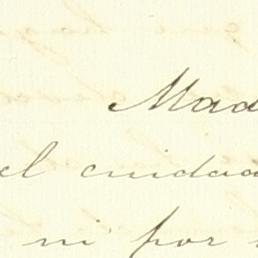 Mad
el cuidad
ni por